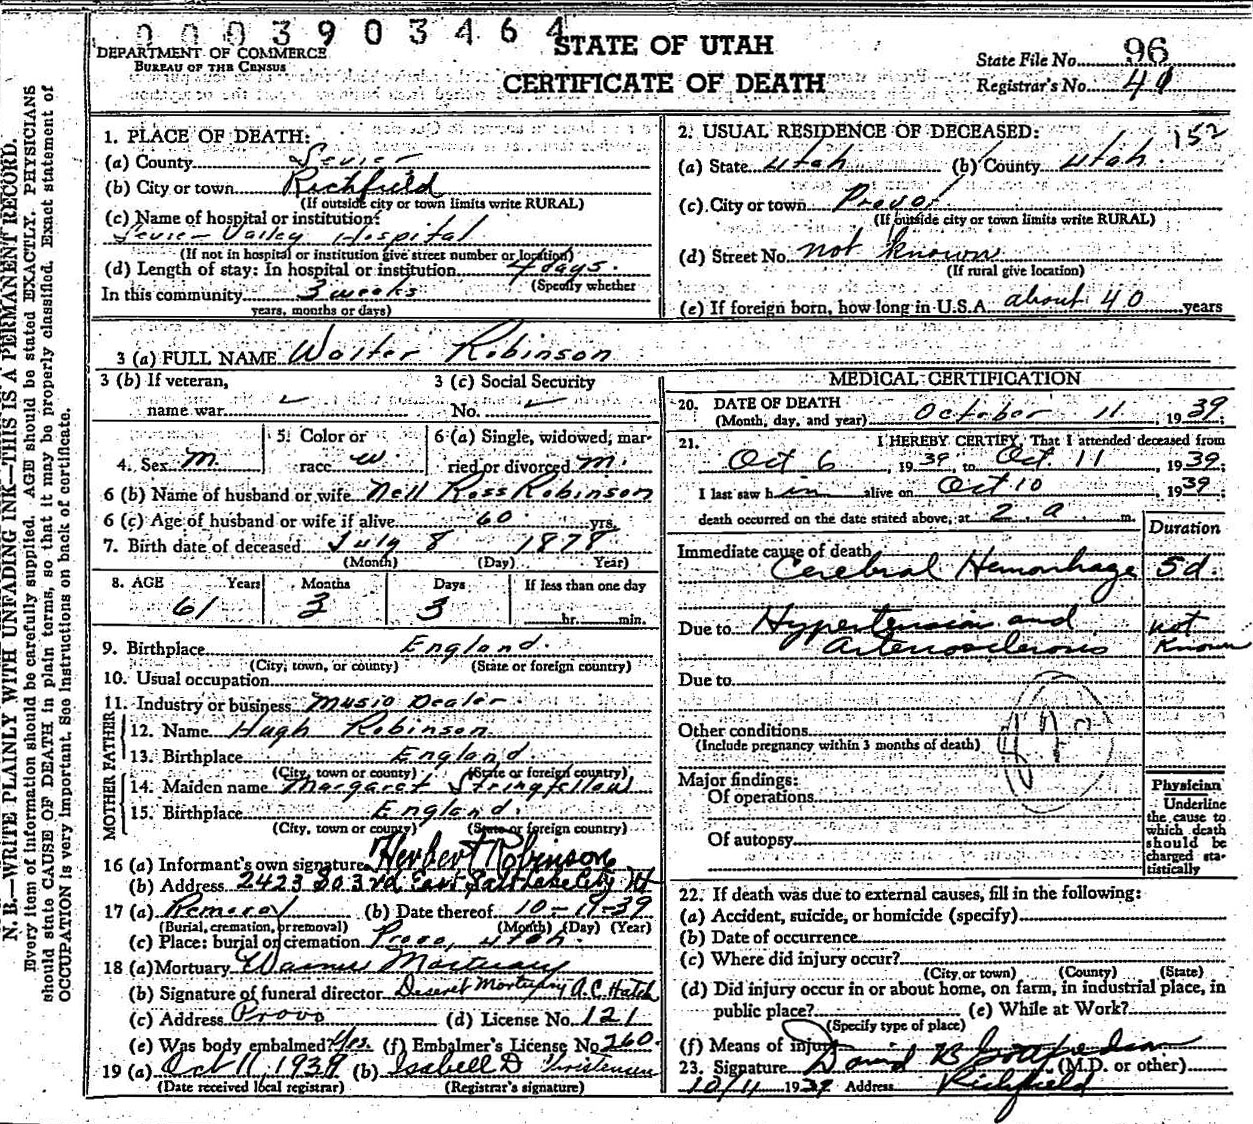 0003903464
DEPARTMENT OF COMMERCE
BUREAU OF THE CENSUS
STATE OF UTAH
CERTIFICATE OF DEATH
State File No. 96
Registrar's No. 40
N. B.—WRITE PLAINLY WITH UNFADING INK—THIS IS A PERMANENT RECORD.
Every item of information should be carefully supplied. AGE should be stated EXACTLY. PHYSICIANS
should state CAUSE OF DEATH in plain terms, so that it may be properly classified. Exact statement of
OCCUPATION is very important. See instructions on back of certificate.
1. PLACE OF DEATH:
(a) County Sevier
(b) City or town Richfield
(If outside city or town limits write RURAL)
(c) Name of hospital or institution:
Sevier Valley Hospital
(If not in hospital or institution give street number or location)
(d) Length of stay: In hospital or institution 4 days.
(Specify whether
In this community 3 weeks
years, months or days)
2. USUAL RESIDENCE OF DECEASED: 152
(a) State Utah (b) County Utah.
(c) City or town Provo
(If outside city or town limits write RURAL)
(d) Street No. not known
(If rural give location)
(e) If foreign born, how long in U.S.A. about 40 years
3 (a) FULL NAME Walter Robinson
3 (b) If veteran,
name war
3 (c) Social Security
No.
4. Sex M.
5. Color or
race W
6 (a) Single, widowed, mar-
ried or divorced M.
6 (b) Name of husband or wife Nell Ross Robinson
6 (c) Age of husband or wife if alive 60 yrs.
7. Birth date of deceased July 8 1878
(Month) (Day) (Year)
8. AGE Years Months Days If less than one day
61 3 3 hr. min.
9. Birthplace England.
(City, town, or county) (State or foreign country)
10. Usual occupation
11. Industry or business Music Dealer.
FATHER
12. Name Hugh Robinson
13. Birthplace England.
(City, town or county) (State or foreign country)
MOTHER
14. Maiden name Margaret Stringfellow
15. Birthplace England.
(City, town or county) (State or foreign country)
16 (a) Informant's own signature Herbert Robinson
(b) Address 2423 So 3rd East Salt Lake City Ut
17 (a) Removal (b) Date thereof 10-11-39
(Burial, cremation, or removal) (Month) (Day) (Year)
(c) Place: burial or cremation Provo, Utah.
18 (a) Mortuary Mortuary
(b) Signature of funeral director Deseret Mortuary A.C. Hatch
(c) Address Provo (d) License No. 121
(e) Was body embalmed? Yes. (f) Embalmer's License No. 260.
19 (a) Oct 11, 1939 (b) Isabell D Christensen
(Date received local registrar) (Registrar's signature)
MEDICAL CERTIFICATION
20. DATE OF DEATH
(Month, day, and year) October 11, 1939;
21. I HEREBY CERTIFY, That I attended deceased from
Oct 6, 1939 to Oct. 11, 1939;
I last saw him alive on Oct 10, 1939;
death occurred on the date stated above, at 2 a. m.
Duration
Immediate cause of death
Cerebral Hemorrhage 5d.
Due to Hypertension and not
Arteriosclerosis known
Due to
Other conditions
(Include pregnancy within 3 months of death)
Major findings:
Of operations
Of autopsy
Physician
Underline
the cause to
which death
should be
charged sta-
tistically
22. If death was due to external causes, fill in the following:
(a) Accident, suicide, or homicide (specify)
(b) Date of occurrence
(c) Where did injury occur?
(City or town) (County) (State)
(d) Did injury occur in or about home, on farm, in industrial place, in
public place? (e) While at Work?
(Specify type of place)
(f) Means of injury
23. Signature David B Gottfredson (M.D. or other)
10/11 1939 Address Richfield